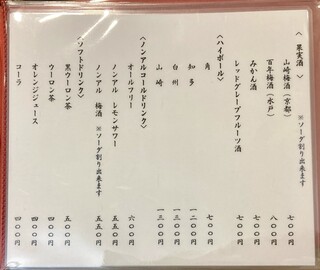 〈果実酒〉
※ソーダ割り出来ます
山崎梅酒(京都) 七〇〇円
百年梅酒(水戸) 八〇〇円
みかん酒 七〇〇円
レッドグレープフルーツ酒 七〇〇円
〈ハイボール〉
角 七〇〇円
知多 一二〇〇円
白州 一三〇〇円
山崎 一三〇〇円
〈ノンアルコールドリンク〉
オールフリー 六〇〇円
ノンアル レモンサワー 五五〇円
ノンアル 梅酒 ※ソーダ割り出来ます 五五〇円
〈ソフトドリンク〉
黒ウーロン茶 五〇〇円
ウーロン茶 四〇〇円
オレンジジュース 四〇〇円
コーラ 四〇〇円